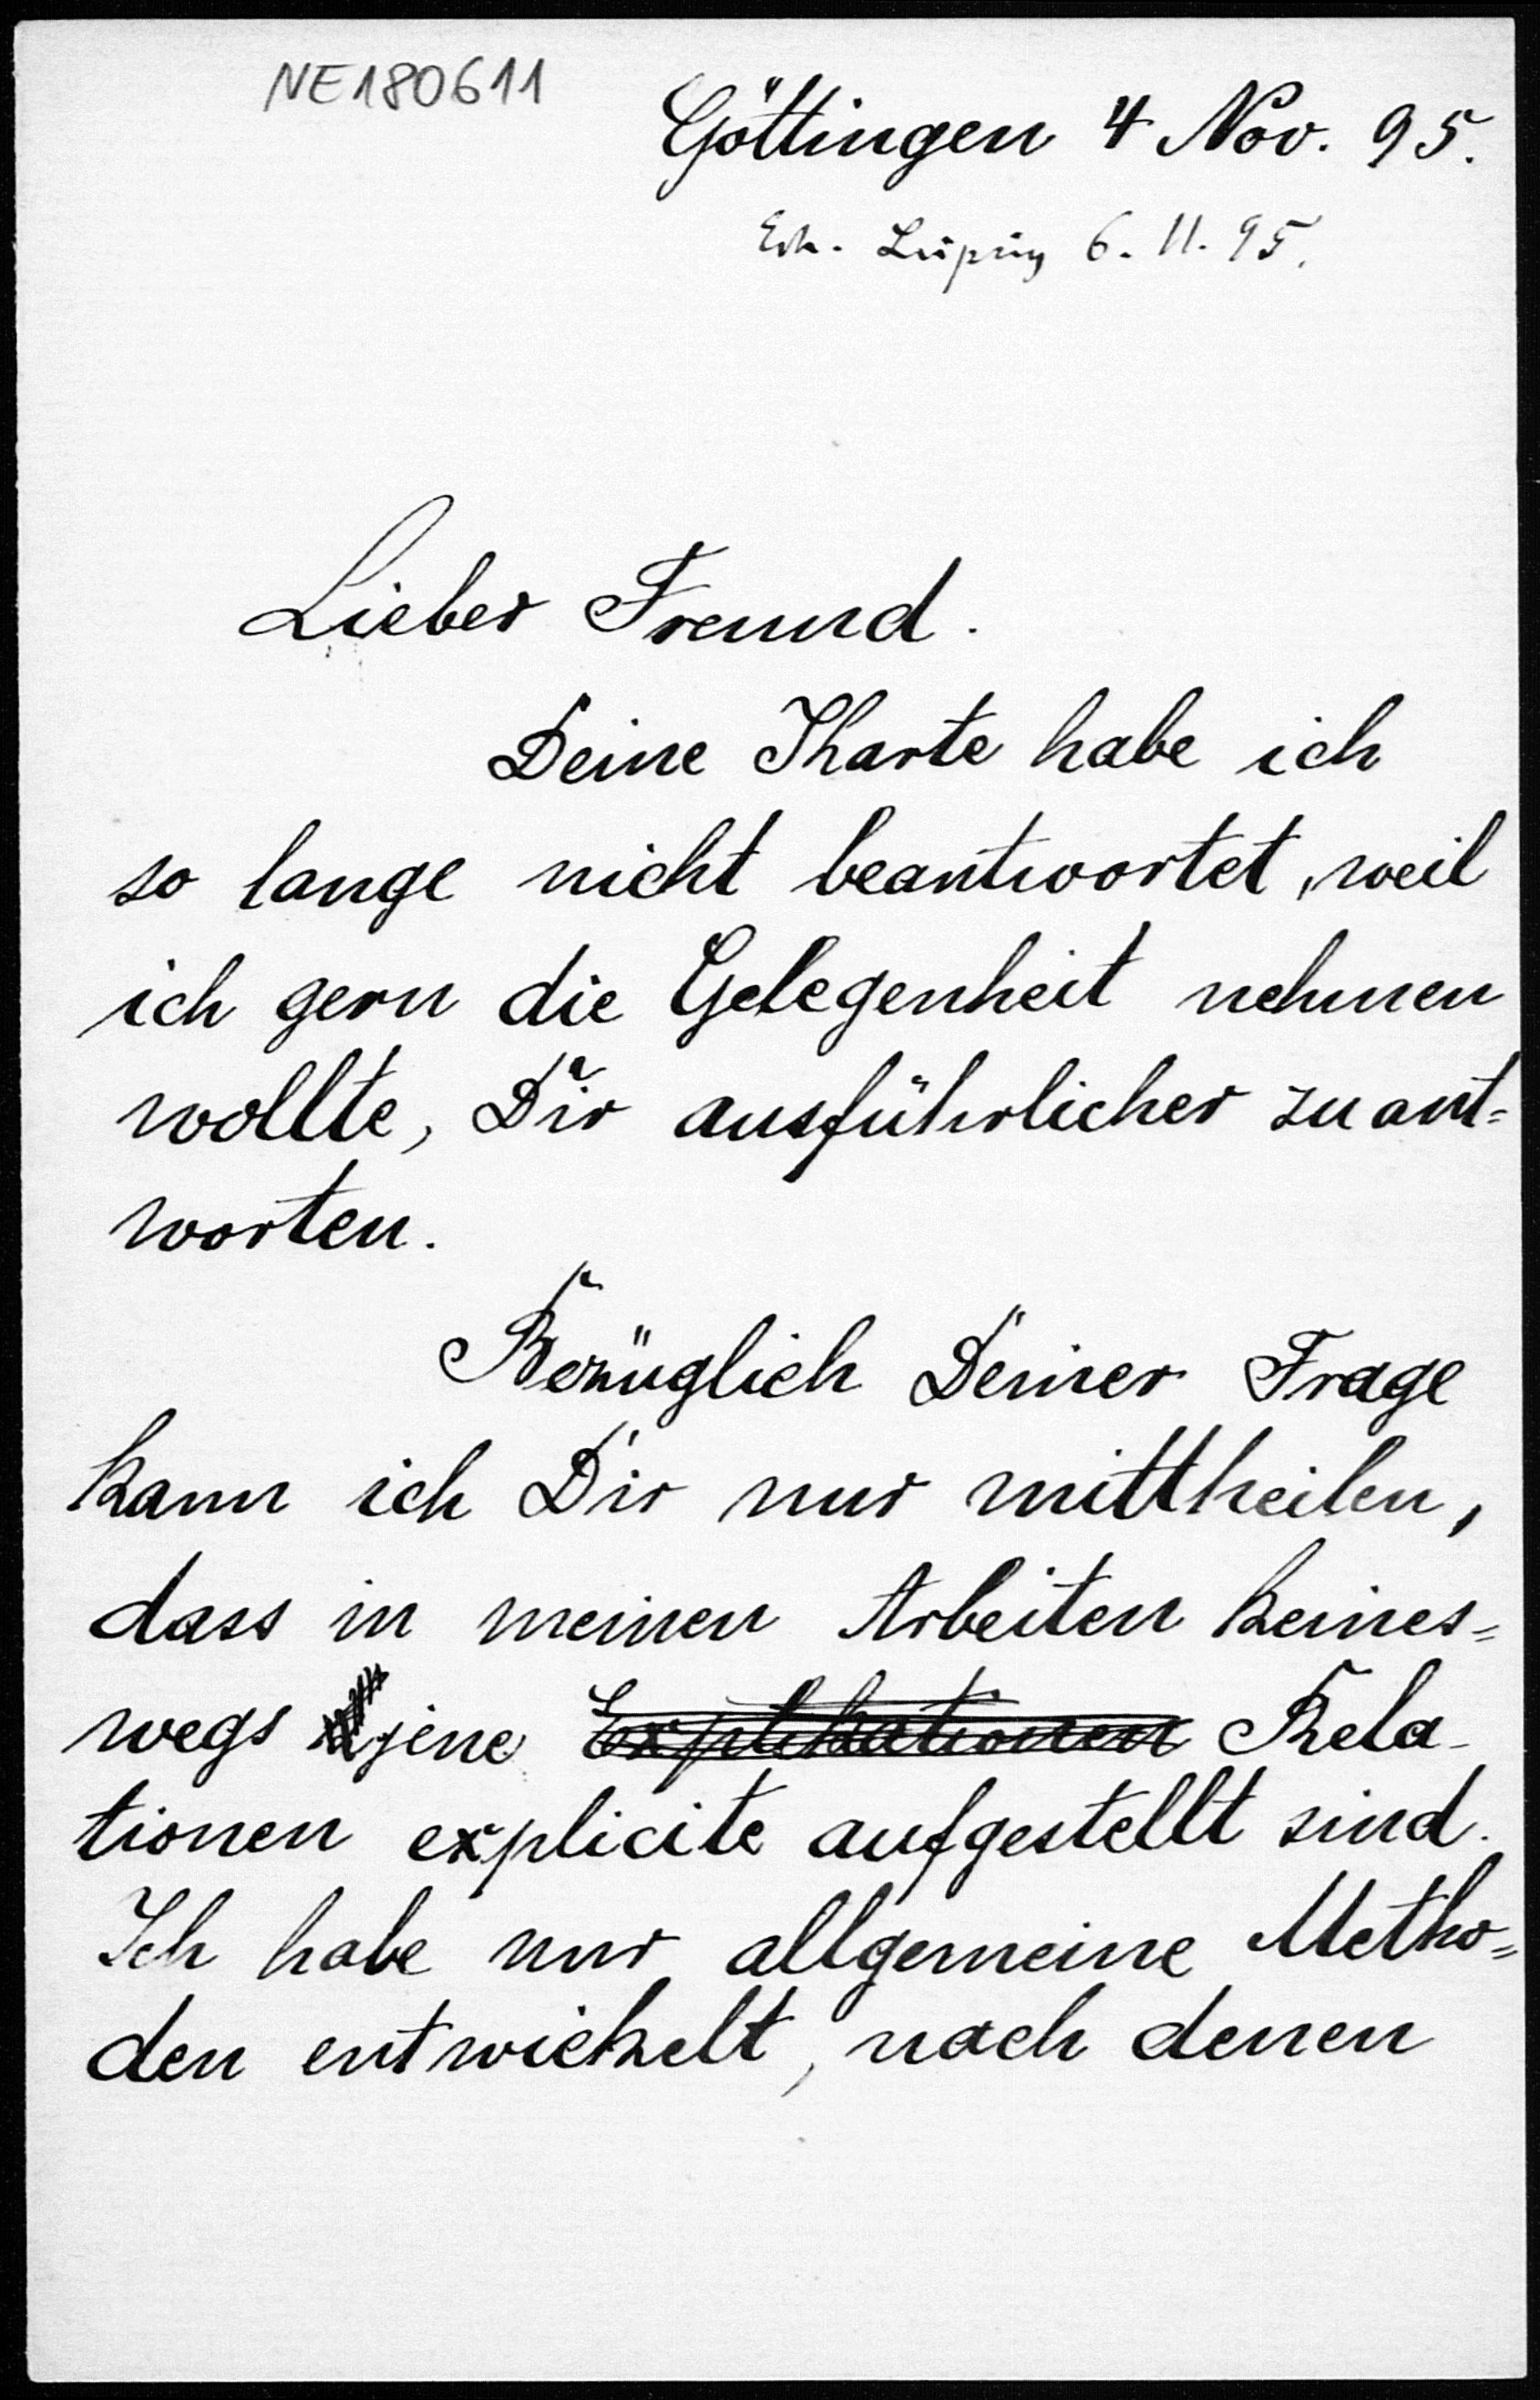 NE180611
Göttingen 4 Nov. 95.
Erh. Leipzig 6. 11. 95.
Lieber Freund.
Deine Kharte habe ich
so lange nicht beantwortet, weil
ich gern die Gelegenheit nehmen
wollte, Dir ausführlicher zu ant=
worten.
Bezüglich Deiner Frage
kann ich Dir nur mittheilen,
dass in meinen Arbeiten keines=
wegs jene Explikationen Rela-
tionen explicite aufgestellt sind.
Ich habe nur allgemeine Metho=
den entwickelt, nach denen